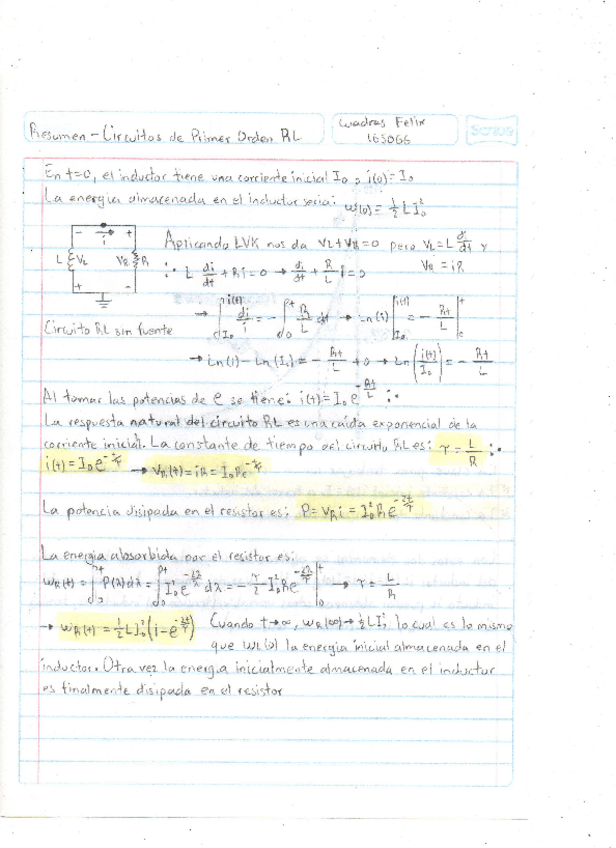 Resumen - Circuitos de Primer Orden RL
Cuadras Felix
163066
Scribe
En t=0, el inductor tiene una corriente inicial I₀ ; i(0) = I₀
La energia almacenada en el inductor seria: w(0) = ½ L I₀²
Aplicando LVK nos da V_L + V_R = 0 pero V_L = L di/dt y
V_R = iR
L V_L V_R R
∴ L di/dt + Ri = 0 → di/dt + R/L i = 0
→ ∫_{I₀}^{i(t)} di/i = - ∫₀ᵗ R/L dt → Ln(i) |_{I₀}^{i(t)} = - Rt/L |₀ᵗ
Circuito RL sin fuente
→ Ln(i) - Ln(I₀) = - Rt/L + 0 → Ln(i(t)/I₀) = - Rt/L
Al tomar las potencias de e se tiene: i(t) = I₀ e^{-Rt/L} ∴
La respuesta natural del circuito RL es una caída exponencial de la
corriente inicial. La constante de tiempo del circuito RL es: τ = L/R ∴
i(t) = I₀ e^{-t/τ} → V_R(t) = iR = I₀ R e^{-t/τ}
La potencia disipada en el resistor es: P = V_R i = I₀² R e^{-2t/τ}
La energia absorbida por el resistor es:
w_R(t) = ∫₀ᵗ P(λ) dλ = ∫₀ᵗ I₀² e^{-2λ/τ} dλ = - τ/2 I₀² R e^{-2λ/τ} |₀ᵗ → τ = L/R
→ w_R(t) = ½ L I₀² (1 - e^{-2t/τ}) Cuando t → ∞, w_R(∞) → ½ L I₀², lo cual es lo mismo
que w_L(0) la energia inicial almacenada en el
inductor. Otra vez la energia inicialmente almacenada en el inductor
es finalmente disipada en el resistor